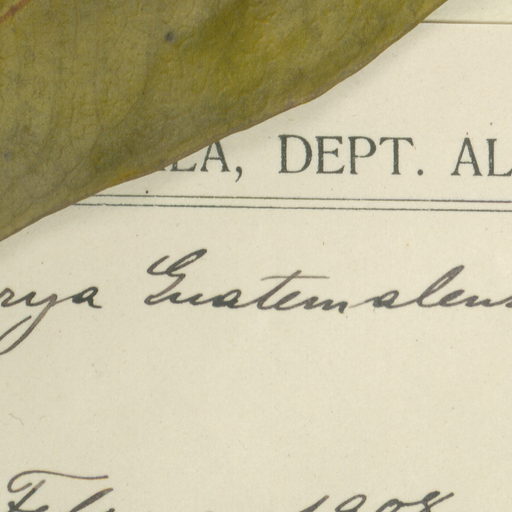 LA, DEPT. AL
rya Guatemalens
Feb 1908